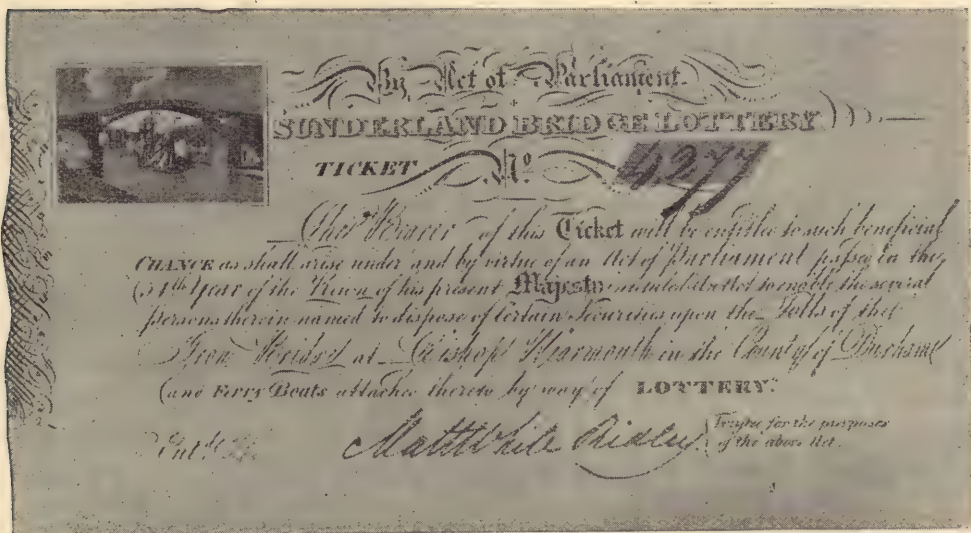 By Act of Parliament.
SUNDERLAND BRIDGE LOTTERY
TICKET No 4277
The Bearer of this Ticket will be entitled to such beneficial
CHANCE as shall arise under and by virtue of an Act of Parliament passed in the
Year of the Reign of his present Majesty intituled An Act to enable the several
Persons therein named to dispose of certain Securities upon the Tolls of the
Iron Bridge at Bishop Wearmouth in the County of Durham
(and Ferry Boats attached thereto by way of LOTTERY.
Matt White Ridley Trustee for the purposes
of the above Act.